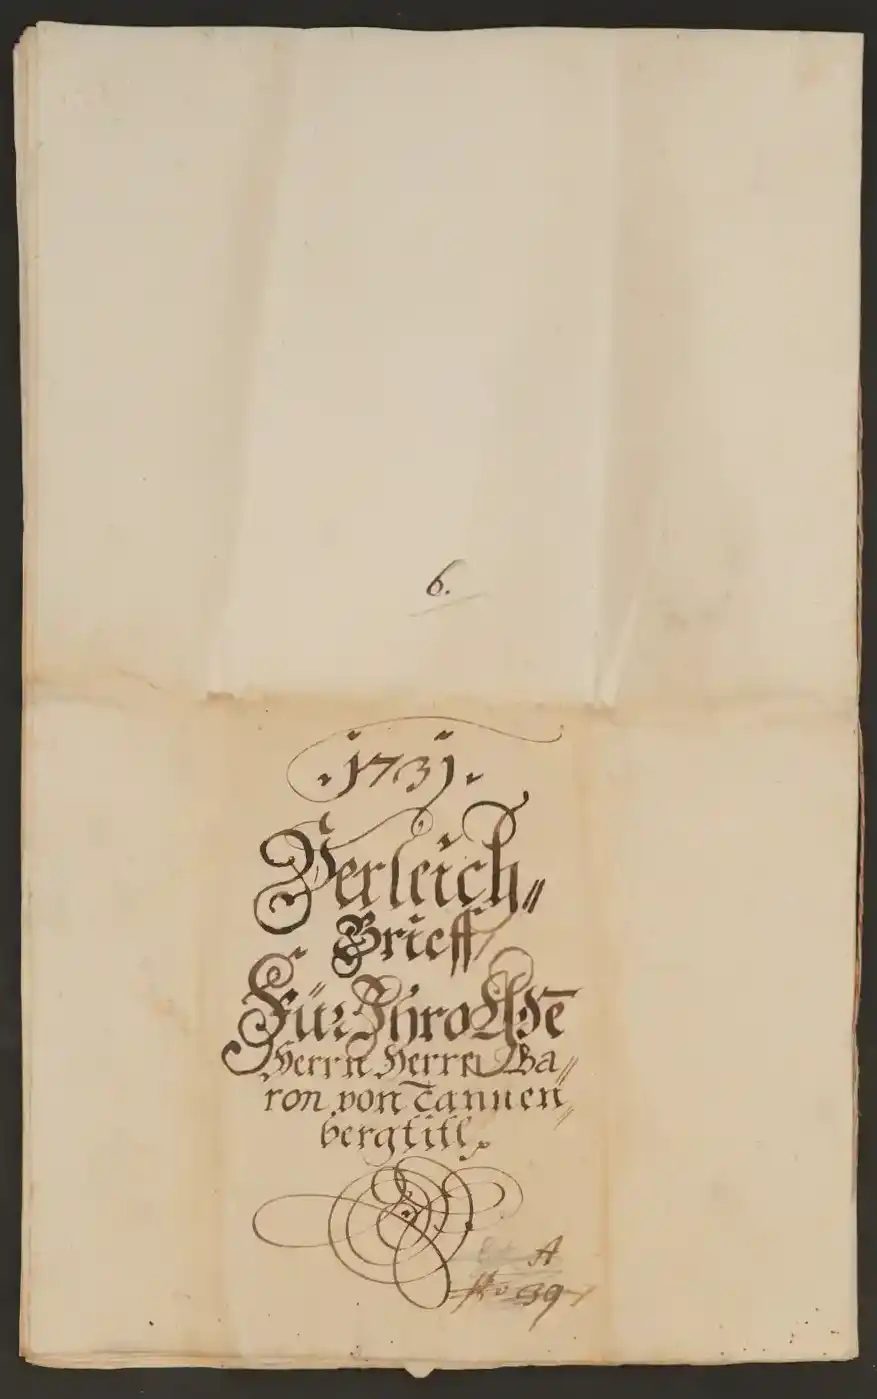 6.
.1731.
Verleich„
Brieff
Für Ihro Gdē
Herrn Herrn Ba„
ron von Tannen„
berg titl.
A
No 39